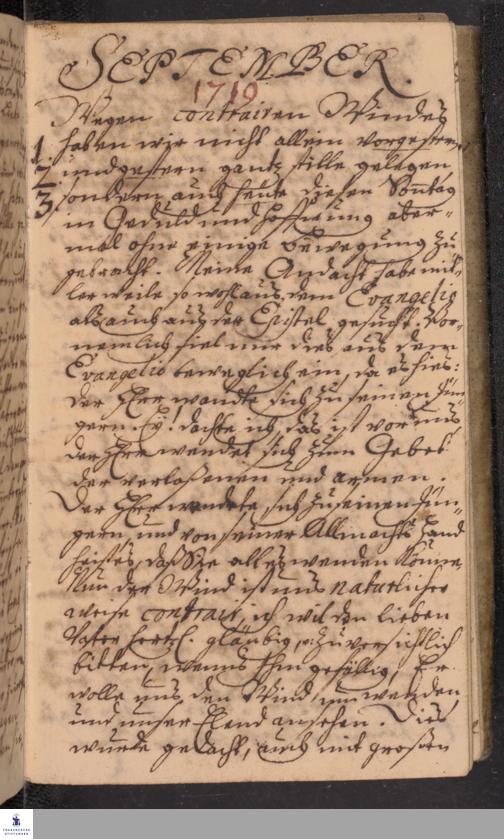 SEPTEMBER.
1719
Wegen contrairen Windes
1 haben wir nicht allein vorgestern
2 und gestern gantz stille gelegen
3 sondern auch heute diesen Sontag
in Geduld und Hoffnung aber-
mal ohne einige bewegung zu
gebracht. Meine Andacht habe mit-
lerweile so wohl aus dem Evangelio
als auch aus der Epistel gesucht. Vor-
nemlich fiel mir dies aus dem
Evangelio beweglich ein, da es hies:
Der HErr wandte sich zu seinen Jün-
gern. Ey! dachte ich, das ist vor uns
der HErr wendet sich zum Gebet
der verlaßenen und armen.
Der HErr wendete sich zu seinen Jün-
gern, und von seiner Allmachts Hand
heist es, daß Sie alles wenden könne.
Nun der Wind ist uns naturlicher
weise contrair, ich wil den lieben
Vater hertzl. gläubig, u. zuversichtlich
bitten, wenns Ihm gefällig, Er
wolle uns den Wind um wenden
und unser Elend ansehen. Dies
wurde gedacht, auch mit großen
FRANCKESCHE
STIFTUNGEN